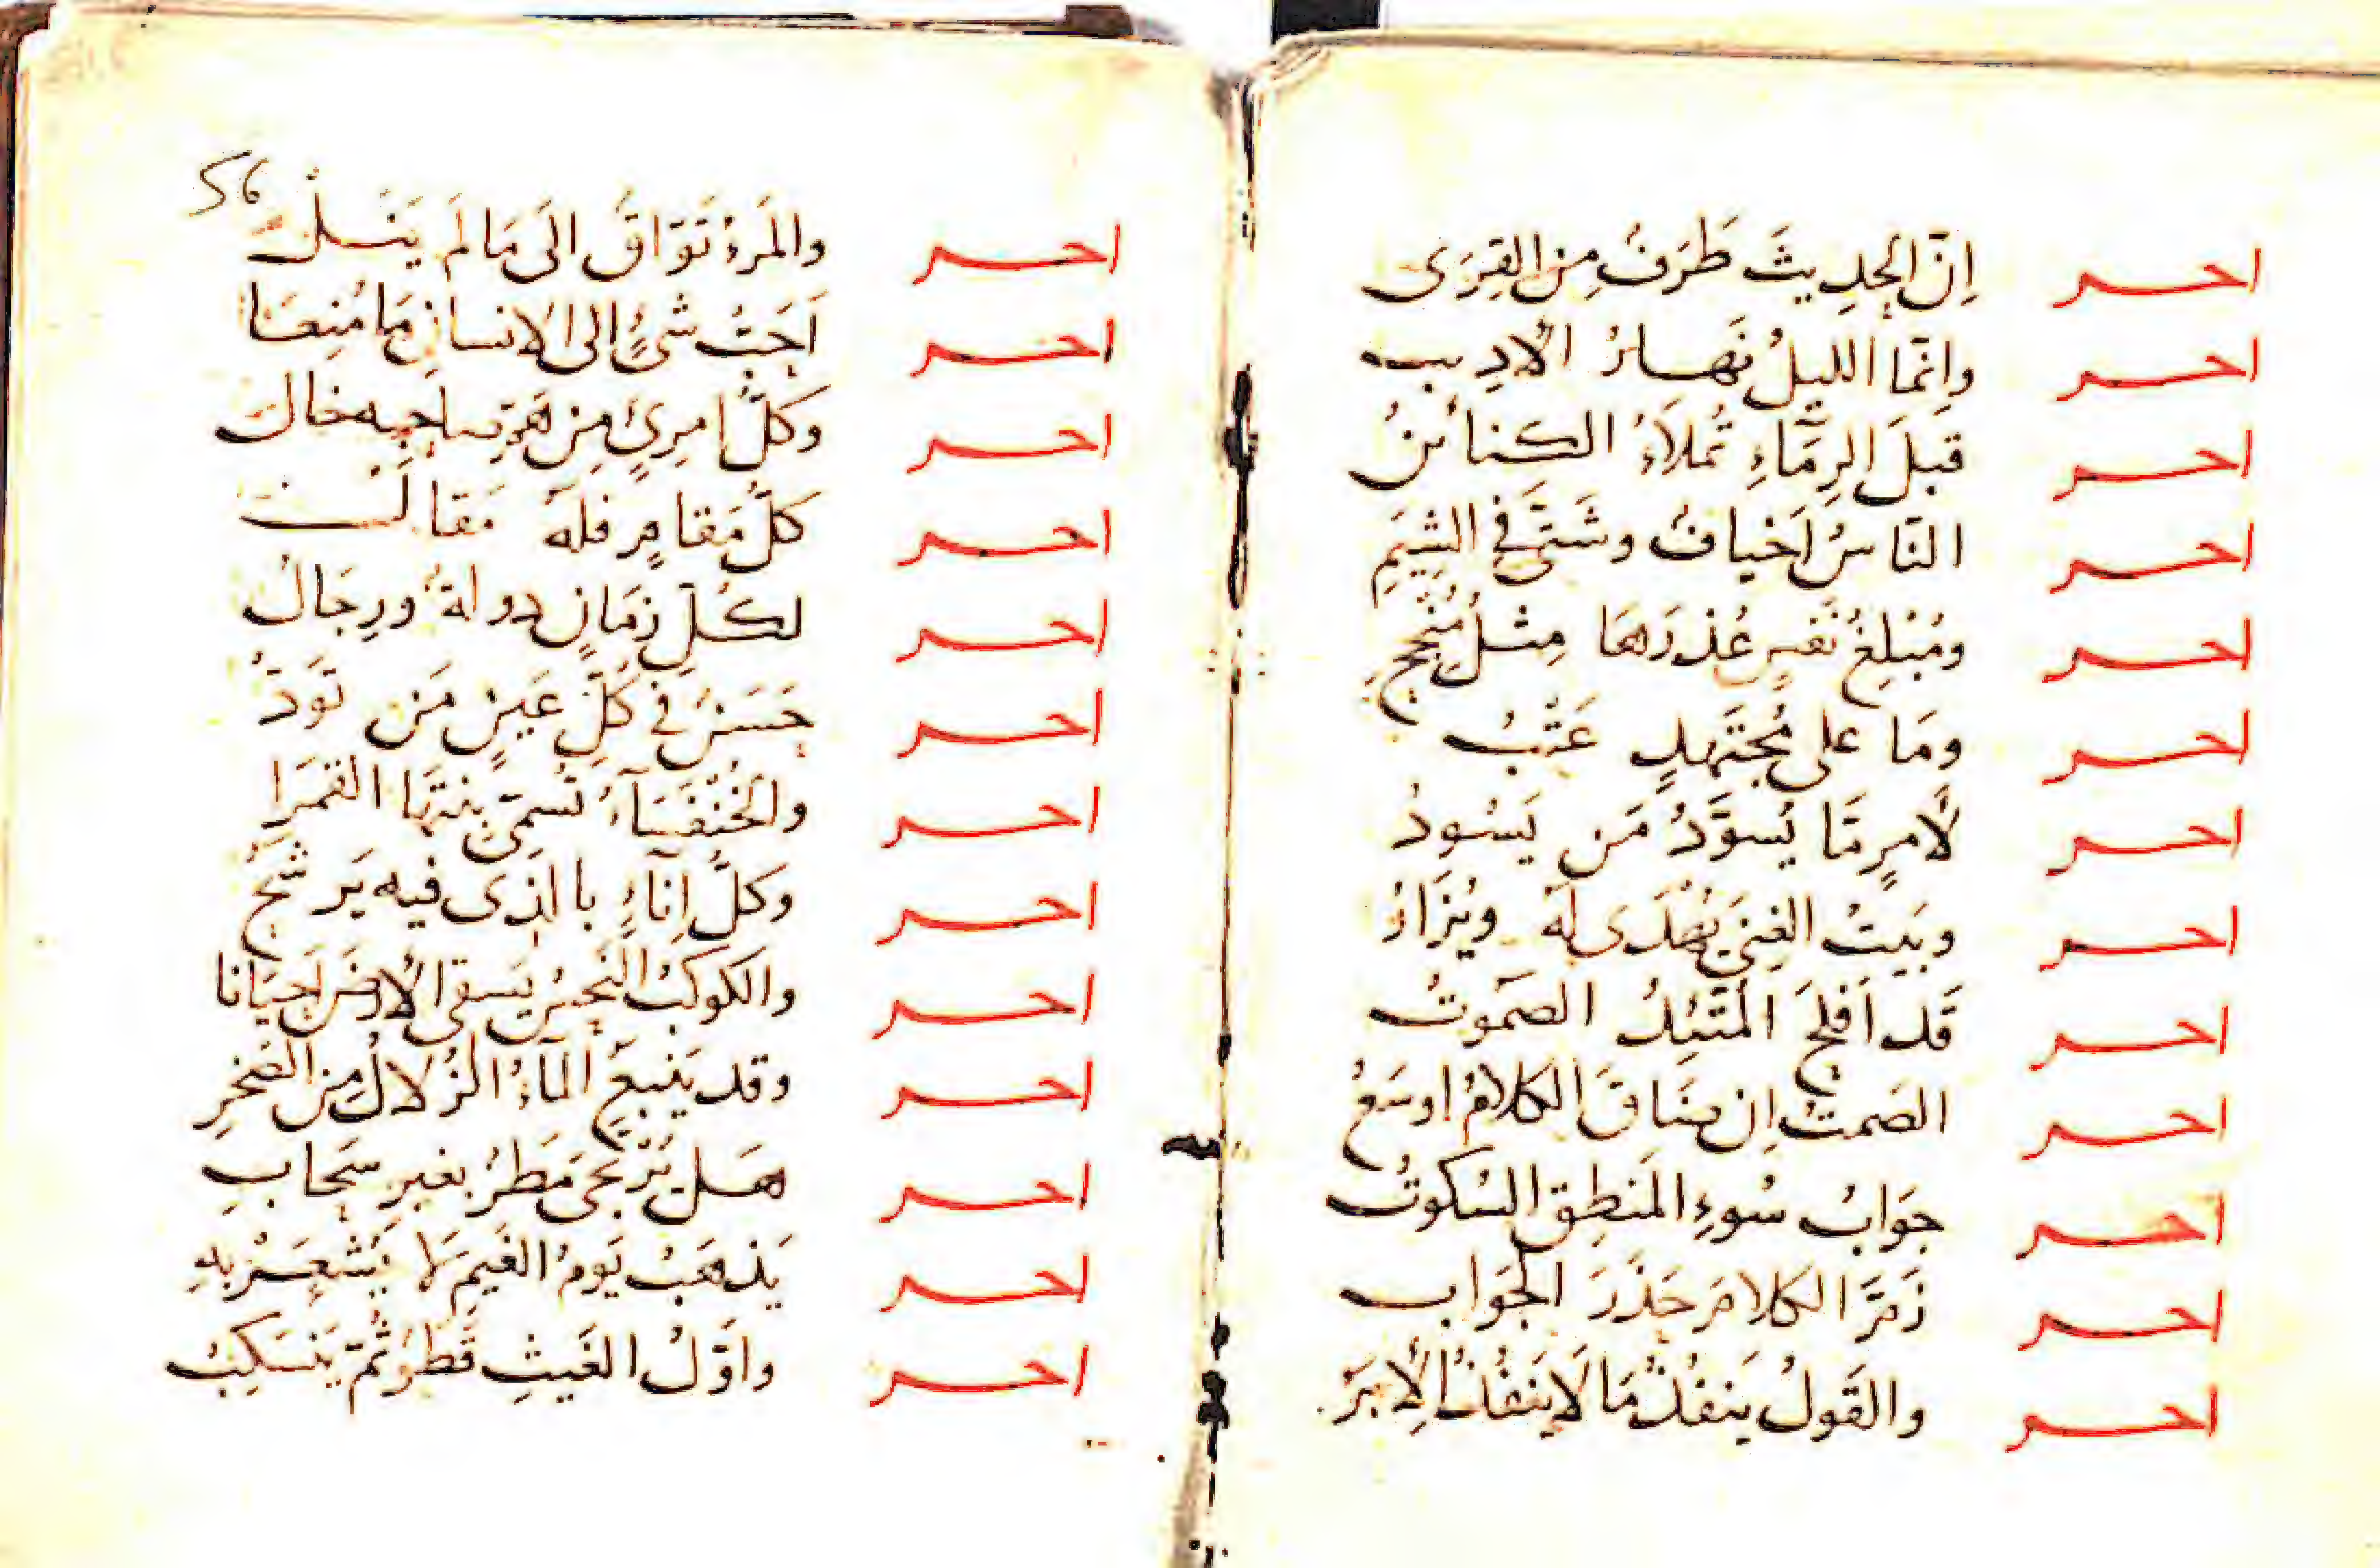 احر إنّ الحدِيثَ طَرَفٌ مِن القِرَى
احر وانّما الليلُ نَهارُ الأدِيب
احر قبلَ الرِمَّاءِ تُملَأُ الكنائنُ
احر النّاسُ اَخيافٌ وشَتَّى في الشِيَمِ
احر ومُبْلِغُ نَفسٍ عُذرَهَا مِثلُ مُنْجِحِ
احر ومَا على مُجتَهِدٍ عَتْبُ
احر لأمرٍ مّا يُسوَّدُ مَن يَسُودُ
احر وبَيتُ الغِنَى يُهْدَى لَهُ ويُزَارُ
احر قَد اَفلحَ المُتّئِدُ الصَمُوتُ
احر الصَمتُ إن ضَاقَ الكلامُ اوسَعُ
احر جوَابُ سُوءِ المَنطِقِ السُكوتُ
احر زَمَّ الكلامَ حَذَرَ الجَواب
احر والقَولُ يَنفُذُ مَا لَا يَنفُذُ الإبَرُ
56
احر والمَرءُ تَوّاقٌ الَى مَا لَم يَنَل
احر اَحَبُّ شئٍ إلى الانسانِ مَا مُنِعَا
احر وكلُّ امرِئٍ مِن هَمِّ صاحِبِه خال
احر كلُّ مَقامٍ فلهُ مَقالُ
احر لكُلِّ زمَانٍ دولةٌ ورِجَالُ
احر حَسَنٌ في كُلِّ عَينٍ مَن تَوَدُّ
احر والخُنْفُسَاءُ تُسمّى بنتَها القمَرا
احر وكلُّ اِناءٍ بالذى فيه يَرشَحُ
احر والكوكبُ النَحسُ يَسقى الأرضَ اَحيَانا
احر وقد يَنبعُ المَاءُ الزُلالُ مِن الصَخرِ
احر هَل يُرتَجَى مَطرٌ بغيرِ سَحابِ
احر يَذهَبُ يَومُ الغَيمِ لَا يُشعَرُ بِهِ
احر واَوّلُ الغَيثِ قَطرٌ ثُمّ يَنسَكِبُ